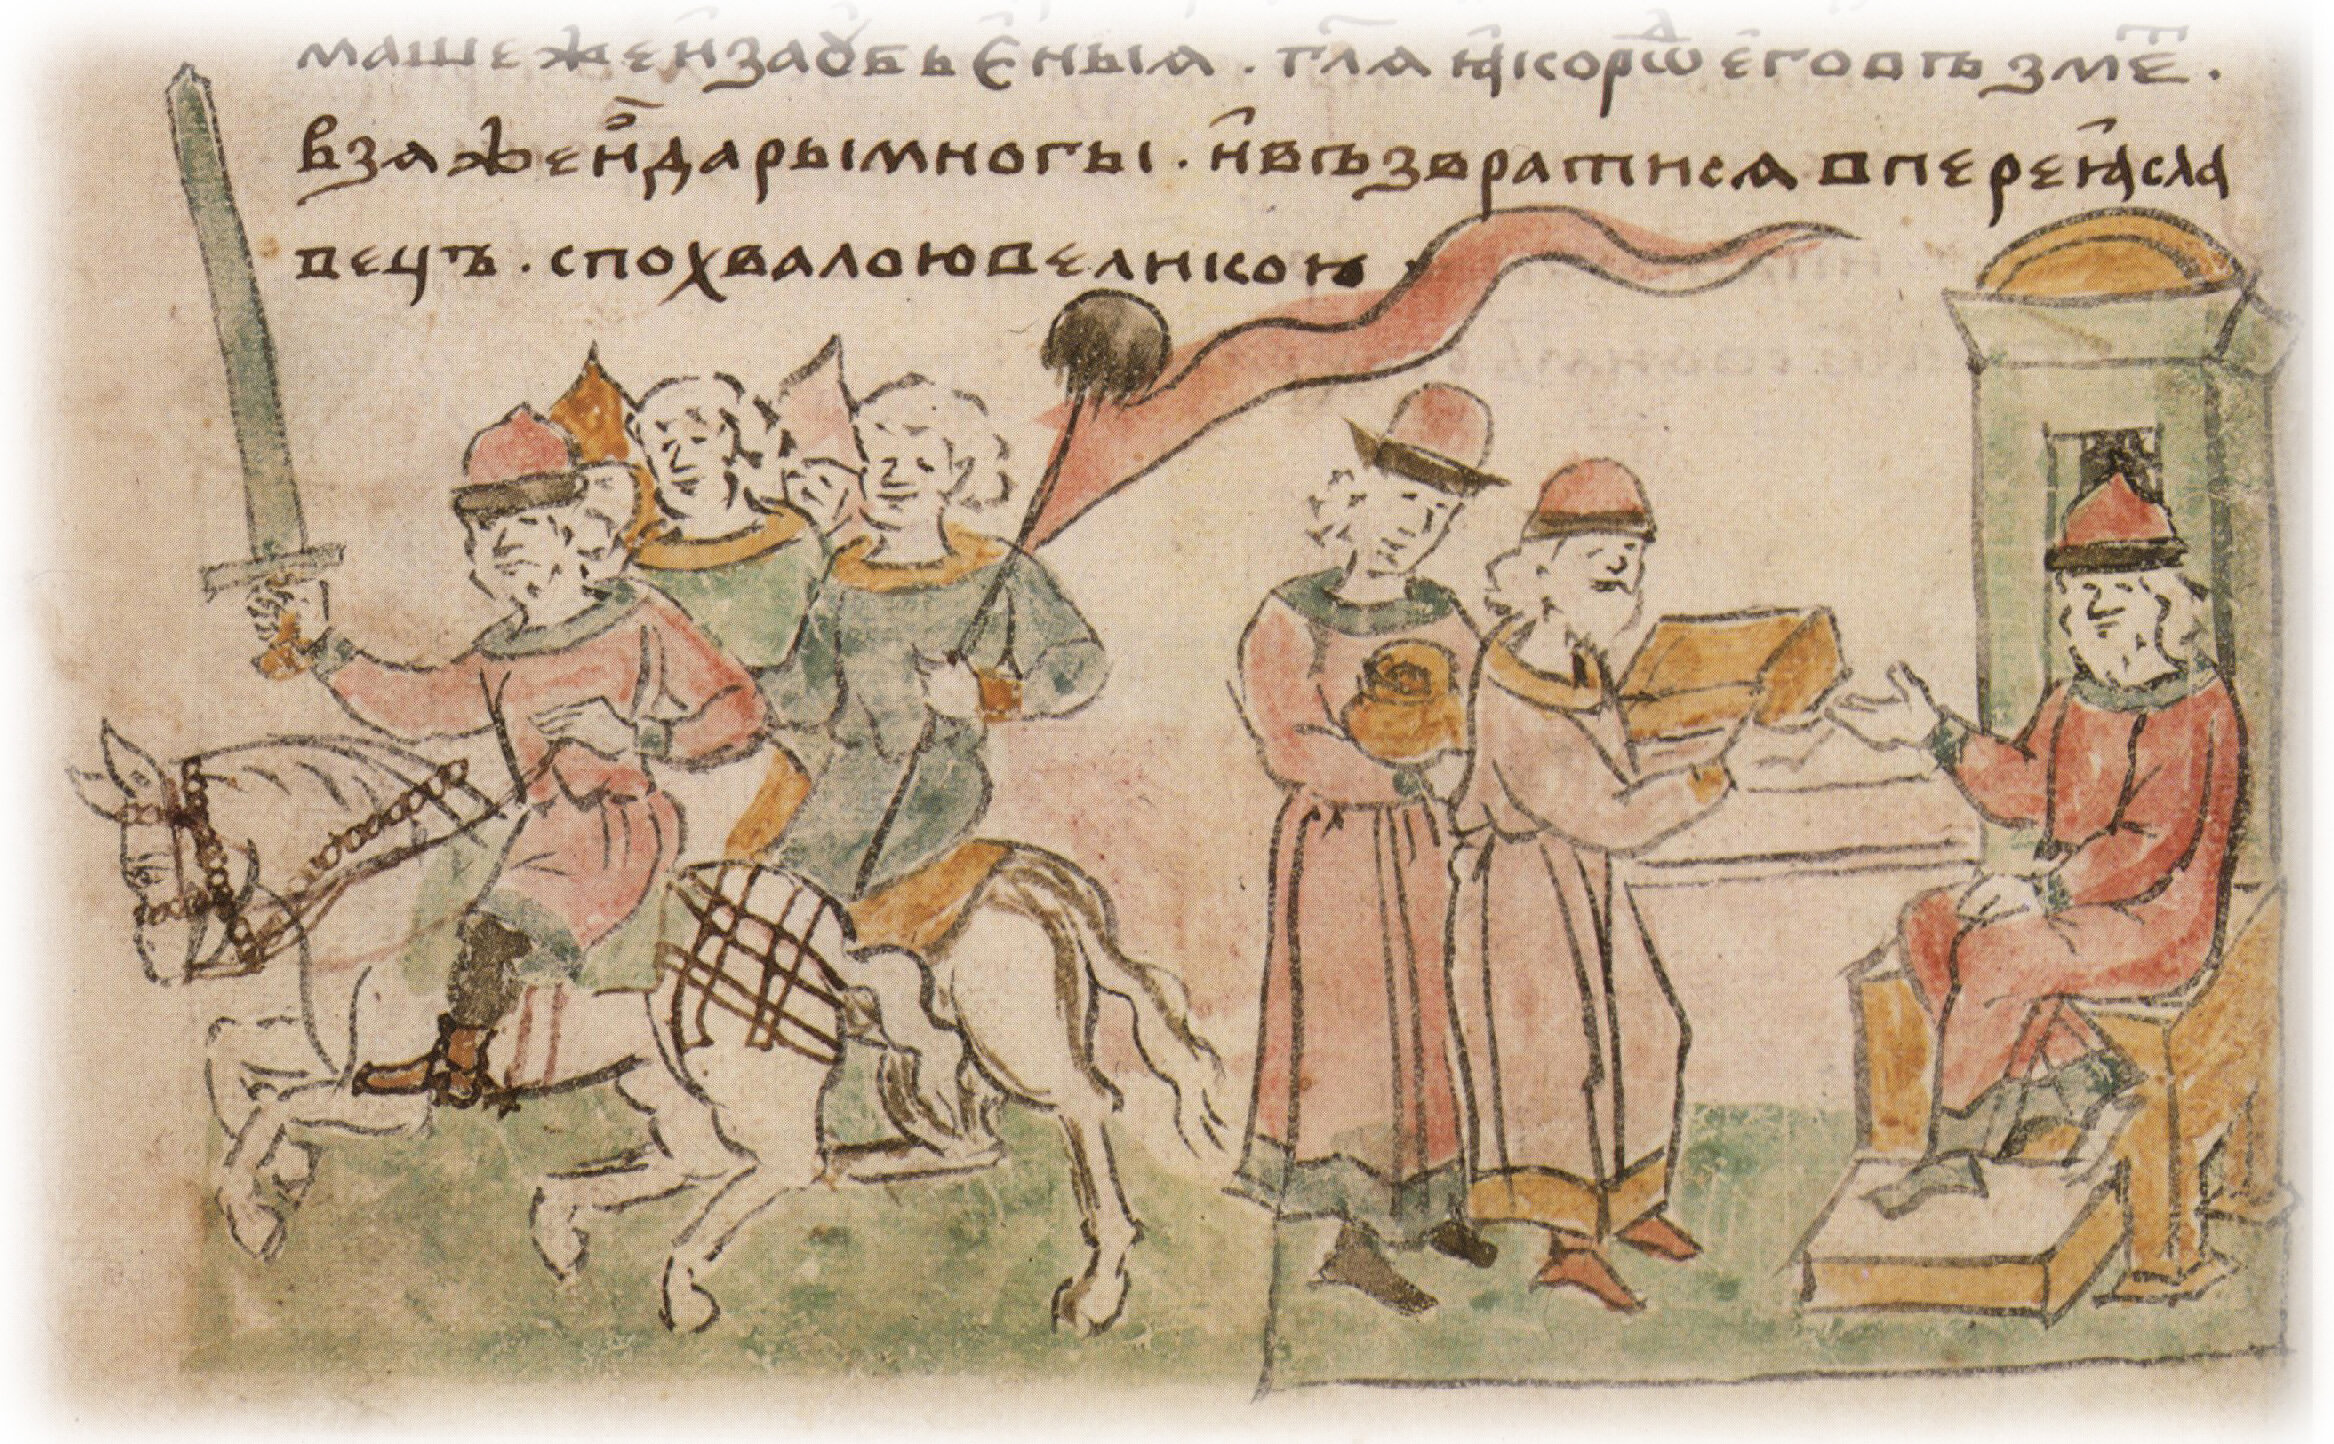 машежеи҆заꙋбьєныѧ . гл҃ѧ ꙗ҆корѡⷣ е҆говъзмеⷮ .
взѧжеи҆дарымногы . и҆възвратисѧвпереꙗ҆сла
вецъ . спохвалоювеликою .